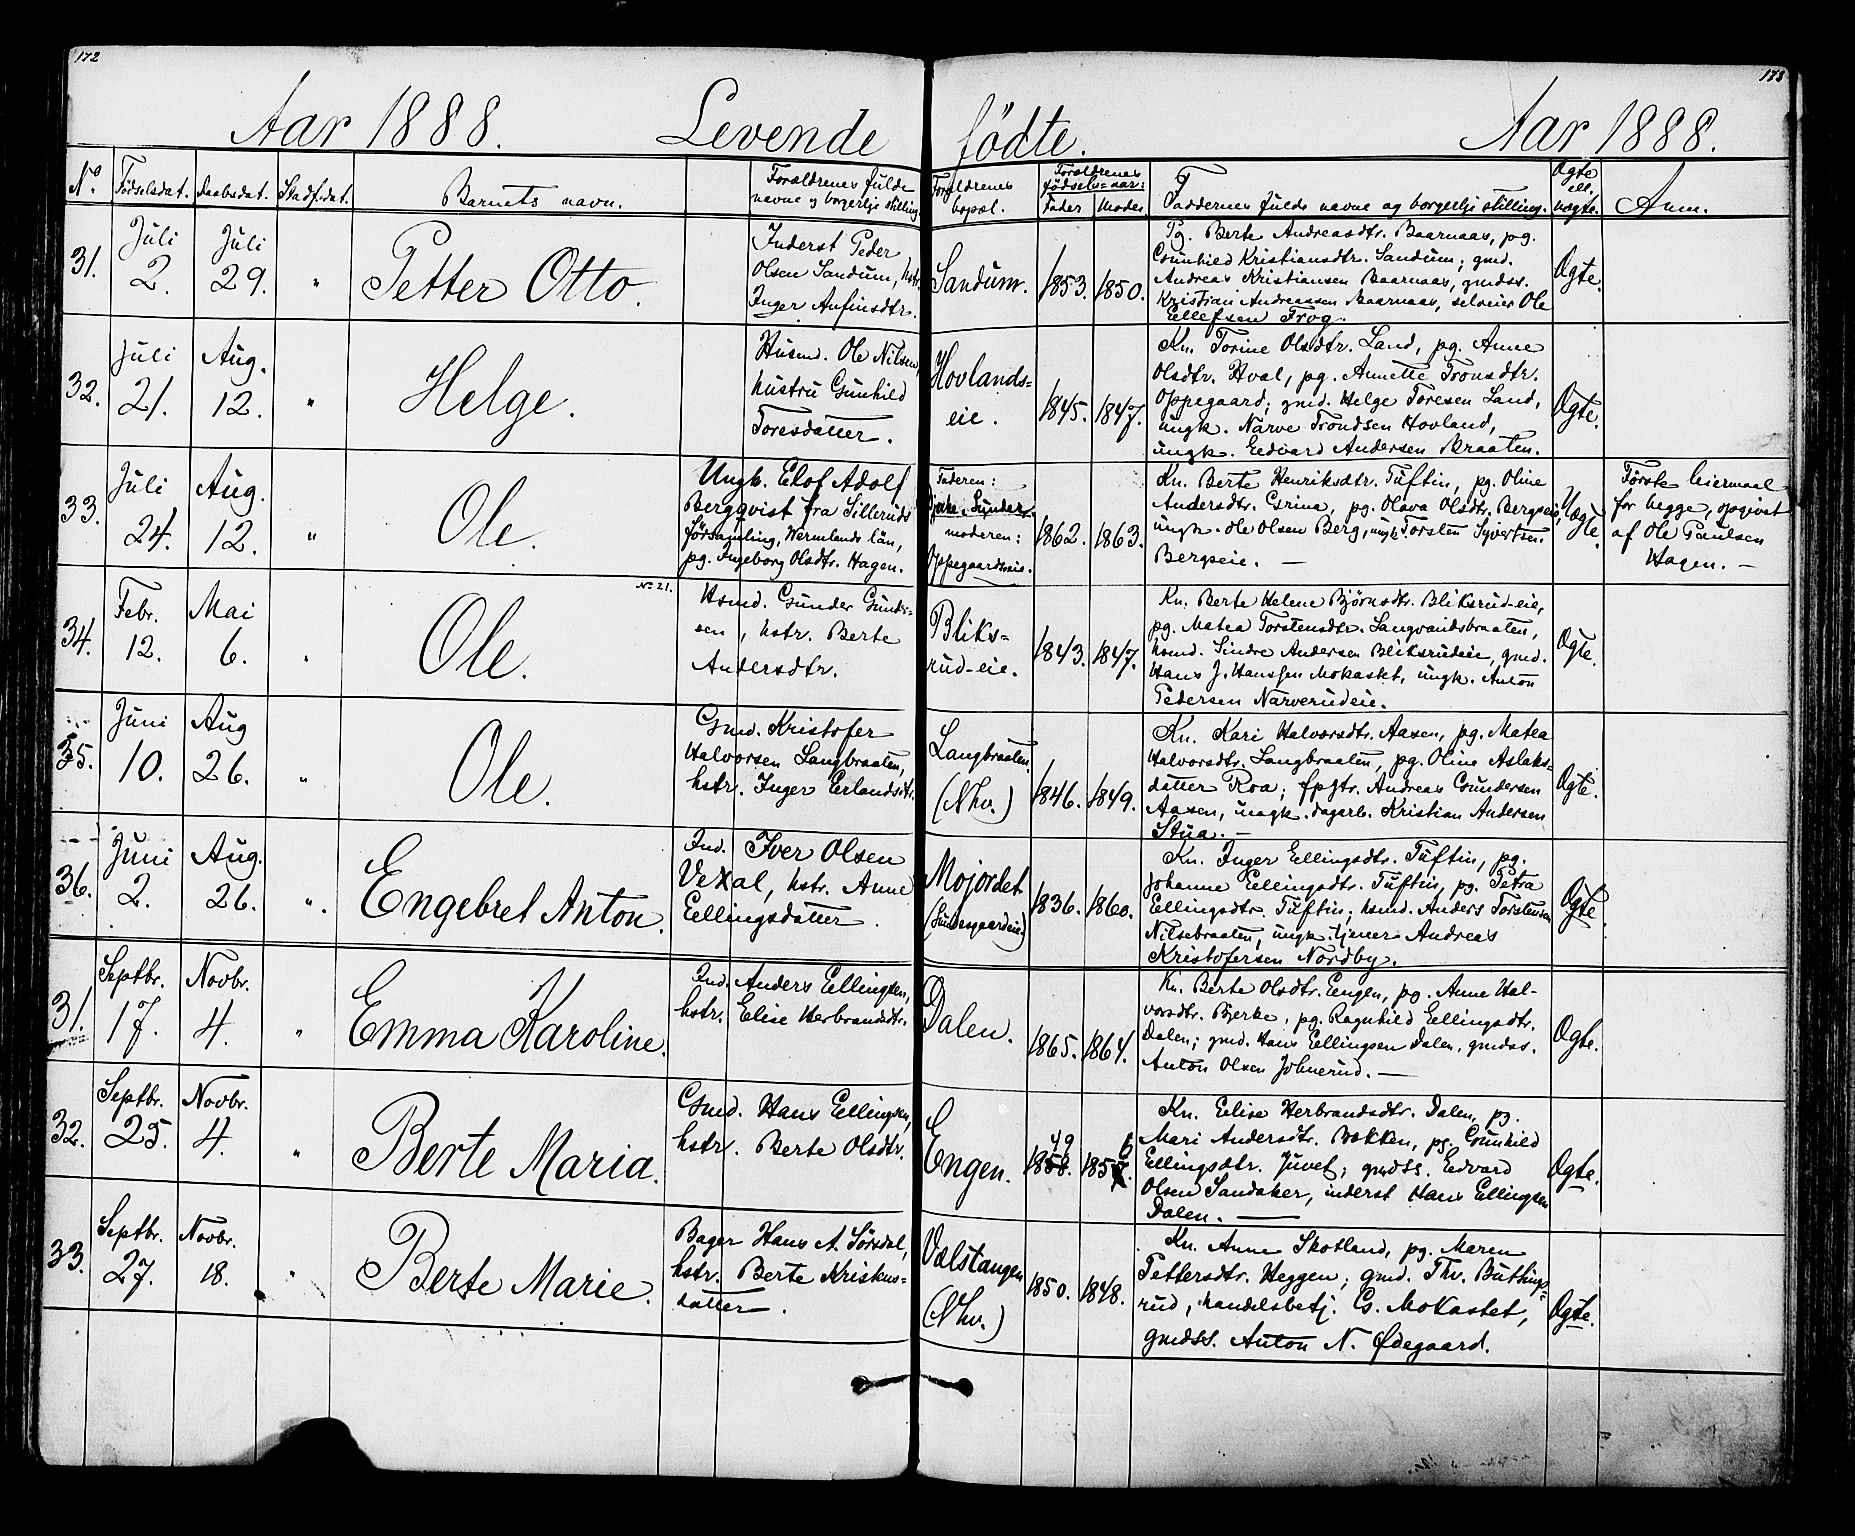 172
173
Aar 1888. Levende fødte. Aar 1888.
No
Fødselsdat.
Daabsdat.
Stadf.dat.
Barnets navn.
Forældrenes fulde
navne og borgerlje stilling
Forældrenes
bopæl.
Forældrenes
fødsels=aar:
Fader
Moder
Faddernes fulde navne og borgerlje stilling.
Ægte
ell.
uægte.
Anm.
31.
Juli
2.
Juli
29.
"
Petter Otto.
Inderst Peder
Olsen Sandum, hstr.
Inger Anfinsdtr.
Sandum.
1853.
1850.
Pg. Berte Andreasdtr. Baarnaas, pg.
Gunhild Kristiansdtr. Sandum; gmd.
Andreas Kristiansen Baarnaas, gmdss.
Kristian Andreassen Baarnaas, selveier Ole
Ellefsen Frog.
Ægte.
32.
Juli
21.
Aug.
12.
"
Helge.
Husmd. Ole Nilsen,
hustru Gunhild
Toresdatter.
Hovlands=
eie.
1845.
1847.
Kn. Torine Olsdtr. Land, pg. Anne
Olsdtr. Hval, pg. Annette Tronsdtr.
Oppegaard; gmd. Helge Toresen Land,
ungk. Narve Trondsen Hovland,
ungk. Eedvard Andersen Braaten.
Ægte.
33.
Juli
24.
Aug.
12.
"
Ole.
Ungk. Elof Adolf
Bergqvist fra Silleruds
församling, Wermlands län,
pg. Ingeborg Olsdtr. Hagen.
Faderen:
moderen:
Oppegaardseie.
1862.
1863.
Kn. Berte Henriksdtr. Tuftin, pg. Oline
Andersdtr. Grina, pg. Olava Olsdtr. Bergseie,
ungk. Ole Olsen Berg, ungk Torsten Syvertsen
Bergseie. —
Uægte.
Første leiermaal
for begge, opgivet
af Ole Paulsen
Hagen. —
34.
Febr.
12.
Mai
6.
"
No 21.
Ole.
Hsmd. Gunder Gunder-
sen, hstr. Berte
Andersdtr.
Bliks=
rud-eie.
1843.
1847.
Kn. Berte Helene Bjørnsdtr. Bliksrud-eie,
pg. Matea Torstensdtr. Langvandsbraaten,
hsmd. Sindre Andersen Bliksrudeie, gmd.
Hans J. Hanssen Mokastet, ungk. Anton
Pedersen Narverudeie.
Ægte.
35.
Juni
10.
Aug
26.
"
Ole.
Gmd. Kristofer
Halvorsen Langbraaten,
hstr. Inger Erlandsdtr.
Langbraaten.
(Nhv.)
1846.
1849.
Kn. Kari Halvorsdtr. Aasen, pg. Matea
Halvorsdtr. Langbraaten, pg. Oline Aslaks-
datter Roa; fpgtr. Andreas Gundersen
Aasen, ungk. dagarb. Kristian Andersen
Stua. —
Ægte.
36.
Juni
2.
Aug.
26.
".
Engebret Anton.
Ind. Iver Olsen
Vexal, hstr. Anne
Eellingsdatter.
Mojordet
1836.
1860.
Kn. Inger Eellingsdtr. Tuftin, pg.
Johanne Eellingsdtr. Tuftin, pg. Petra
Eellingsdtr. Tuftin; hsmd. Anders Torstensen
Nilsebraaten, ungk. tjener Andreas
Kristofersen Nordby.
Ægte
31.
Septbr.
17.
Novbr.
4.
"
Emma Karoline.
Ind. Anders Eellingsen,
hstr. Elise Herbrandsdtr.
Dalen.
1865.
1864.
Kn. Berte Olsdtr. Eengen, pg. Anne Hal-
vorsdtr. Bjerke, pg. Ragnhild Eellingsdtr.
Dalen; gmd. Hans Eellingsen Dalen, gmdss.
Anton Olsen Johnerud. —
Ægte.
32.
Septbr.
25.
Novbr.
4.
"
Berte Maria.
Gmd. Hans Eellingsen,
hstr. Berte Olsdtr.
Engen.
49
1858.
6
1857.
Kn. Eelise Herbrandsdtr. Dalen, pg.
Mari Andersdtr. Bækken, pg. Gunhild
Ellingsdtr. Juvet; gmdss. Eedvard
Olsen Sandaker, inderst Hans Ellingsen
Dalen. —
Ægte.
33.
Septbr.
27.
Novbr.
18.
"
Berte Marie.
Bager Hans A. Sørsdal,
hstr. Berte Kristens=
datter.
Vælstangen
(Nhv.)
1850.
1848.
Kn. Anne Skotland, pg. Maren
Pettersdtr. Heggen; gmd. Thv. Buttings=
rud, handelsbetj. G. Mokastet,
gmdss. Anton N. Ødegaard.
Ægte.